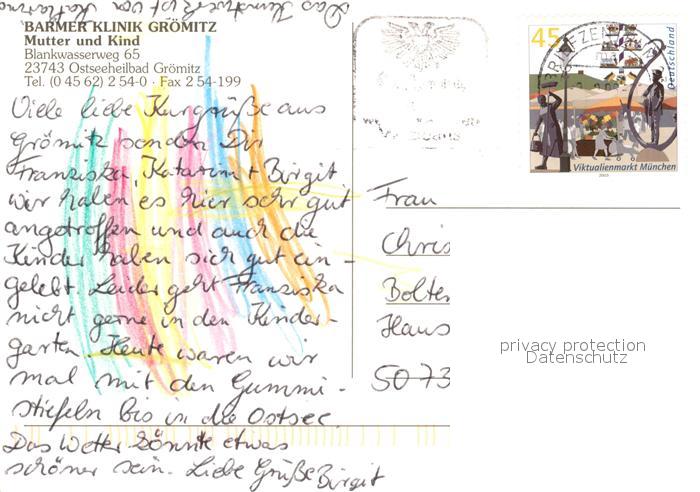 Das Kunstwerk ist von Katharina
BARMER KLINIK GRÖMITZ
Mutter und Kind
Blankwasserweg 65
23743 Ostseeheilbad Grömitz
Tel. (0 45 62) 2 54-0 · Fax 2 54-199
Viele liebe Kurgrüße aus
Grömitz senden Dir
Franziska, Katarina + Birgit
wir haben es hier sehr gut
angetroffen und auch die
Kinder haben sich gut ein-
gelebt. Leider geht Franziska
nicht gerne in den Kinder-
garten. Heute waren wir
mal mit den Gummi-
stiefeln bis in die Ostsee.
Das Wetter könnte etwas
schöner sein. Liebe Grüße Birgit
45
Deutschland
Viktualienmarkt München
2003
BRIEFZEN
Frau
Chris
Boltes
Haus
5073
privacy protection
Datenschutz